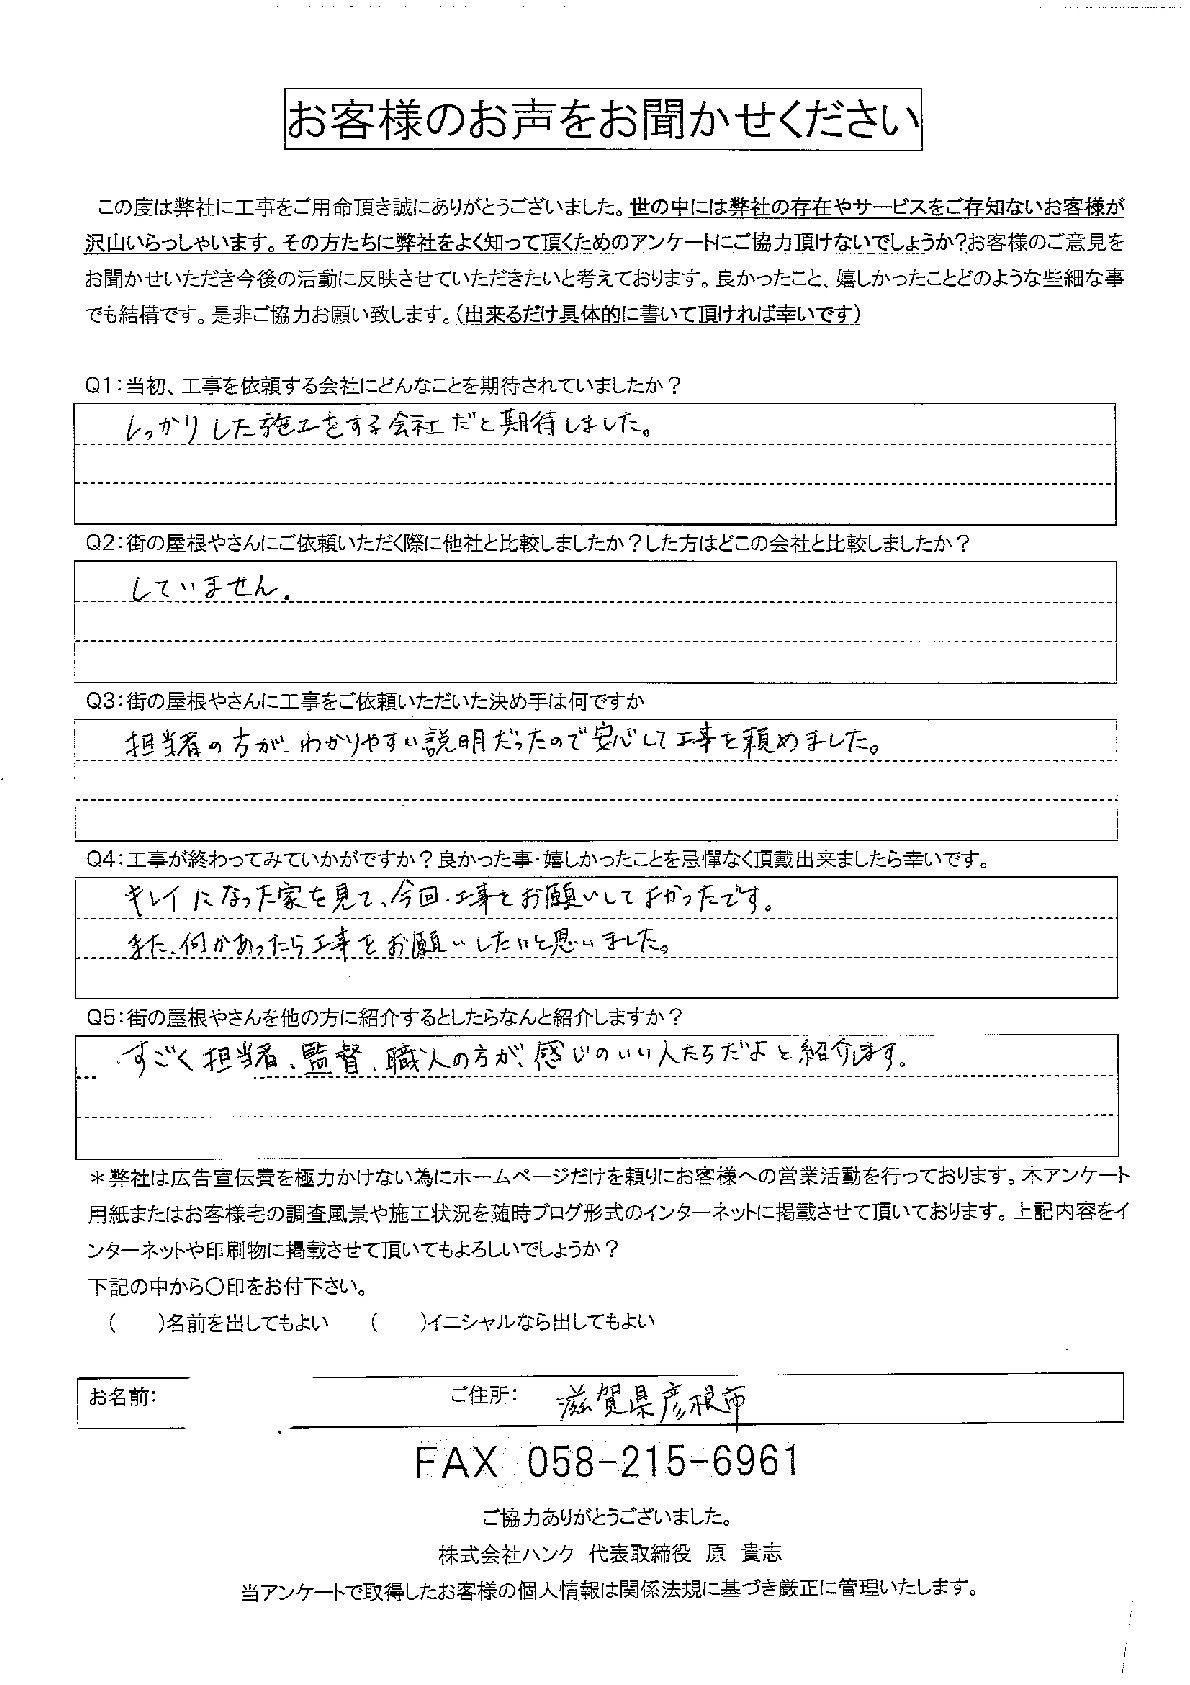 お客様のお声をお聞かせください
この度は弊社に工事をご用命頂き誠にありがとうございました。世の中には弊社の存在やサービスをご存知ないお客様が
沢山いらっしゃいます。その方たちに弊社をよく知って頂くためのアンケートにご協力頂けないでしょうか?お客様のご意見を
お聞かせいただき今後の活動に反映させていただきたいと考えております。良かったこと、嬉しかったことどのような些細な事
でも結構です。是非ご協力お願い致します。(出来るだけ具体的に書いて頂ければ幸いです)
Q1:当初、工事を依頼する会社にどんなことを期待されていましたか?
しっかりした施工をする会社だと期待しました。
Q2:街の屋根やさんにご依頼いただく際に他社と比較しましたか?した方はどこの会社と比較しましたか?
していません。
Q3:街の屋根やさんに工事をご依頼いただいた決め手は何ですか
担当者の方が、わかりやすい説明だったので安心して工事を頼めました。
Q4:工事が終わってみていかがですか?良かった事・嬉しかったことを忌憚なく頂戴出来ましたら幸いです。
キレイになった家を見て、今回、工事をお願いしてよかったです。
また、何かあったら工事をお願いしたいと思いました。
Q5:街の屋根やさんを他の方に紹介するとしたらなんと紹介しますか?
すごく担当者、監督、職人の方が、感じのいい人たちだよと紹介します。
*弊社は広告宣伝費を極力かけない為にホームページだけを頼りにお客様への営業活動を行っております。本アンケート
用紙またはお客様宅の調査風景や施工状況を随時ブログ形式のインターネットに掲載させて頂いております。上記内容をイ
ンターネットや印刷物に掲載させて頂いてもよろしいでしょうか?
下記の中から〇印をお付下さい。
(　　)名前を出してもよい　　(　　)イニシャルなら出してもよい
お名前:　ご住所:　滋賀県彦根市
FAX 058-215-6961
ご協力ありがとうございました。
株式会社ハンク 代表取締役 原 貴志
当アンケートで取得したお客様の個人情報は関係法規に基づき厳正に管理いたします。